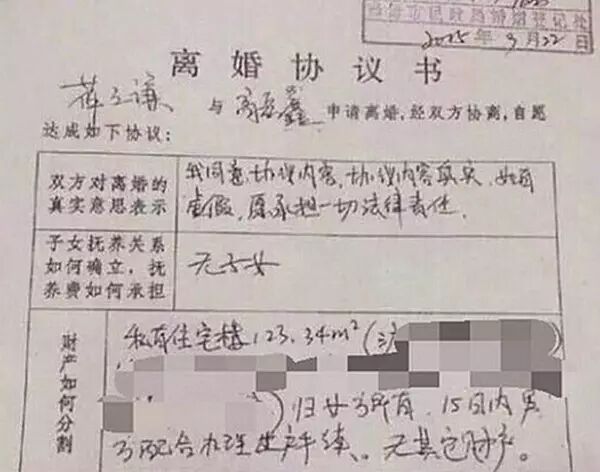 婚姻登记处
2015年3月22日
离婚协议书
与 申请离婚,经双方协离,自愿
达成如下协议:
双方对离婚的
真实意思表示
我同意协议内容,协议内容真实,如有
虚假,愿承担一切法律责任.
子女抚养关系
如何确立,抚
养费如何承担
无子女
财产如何分割
私有住宅楼123.34m²(
)归女方所有.15日内男
方配合办理过户手续、无其它财产。